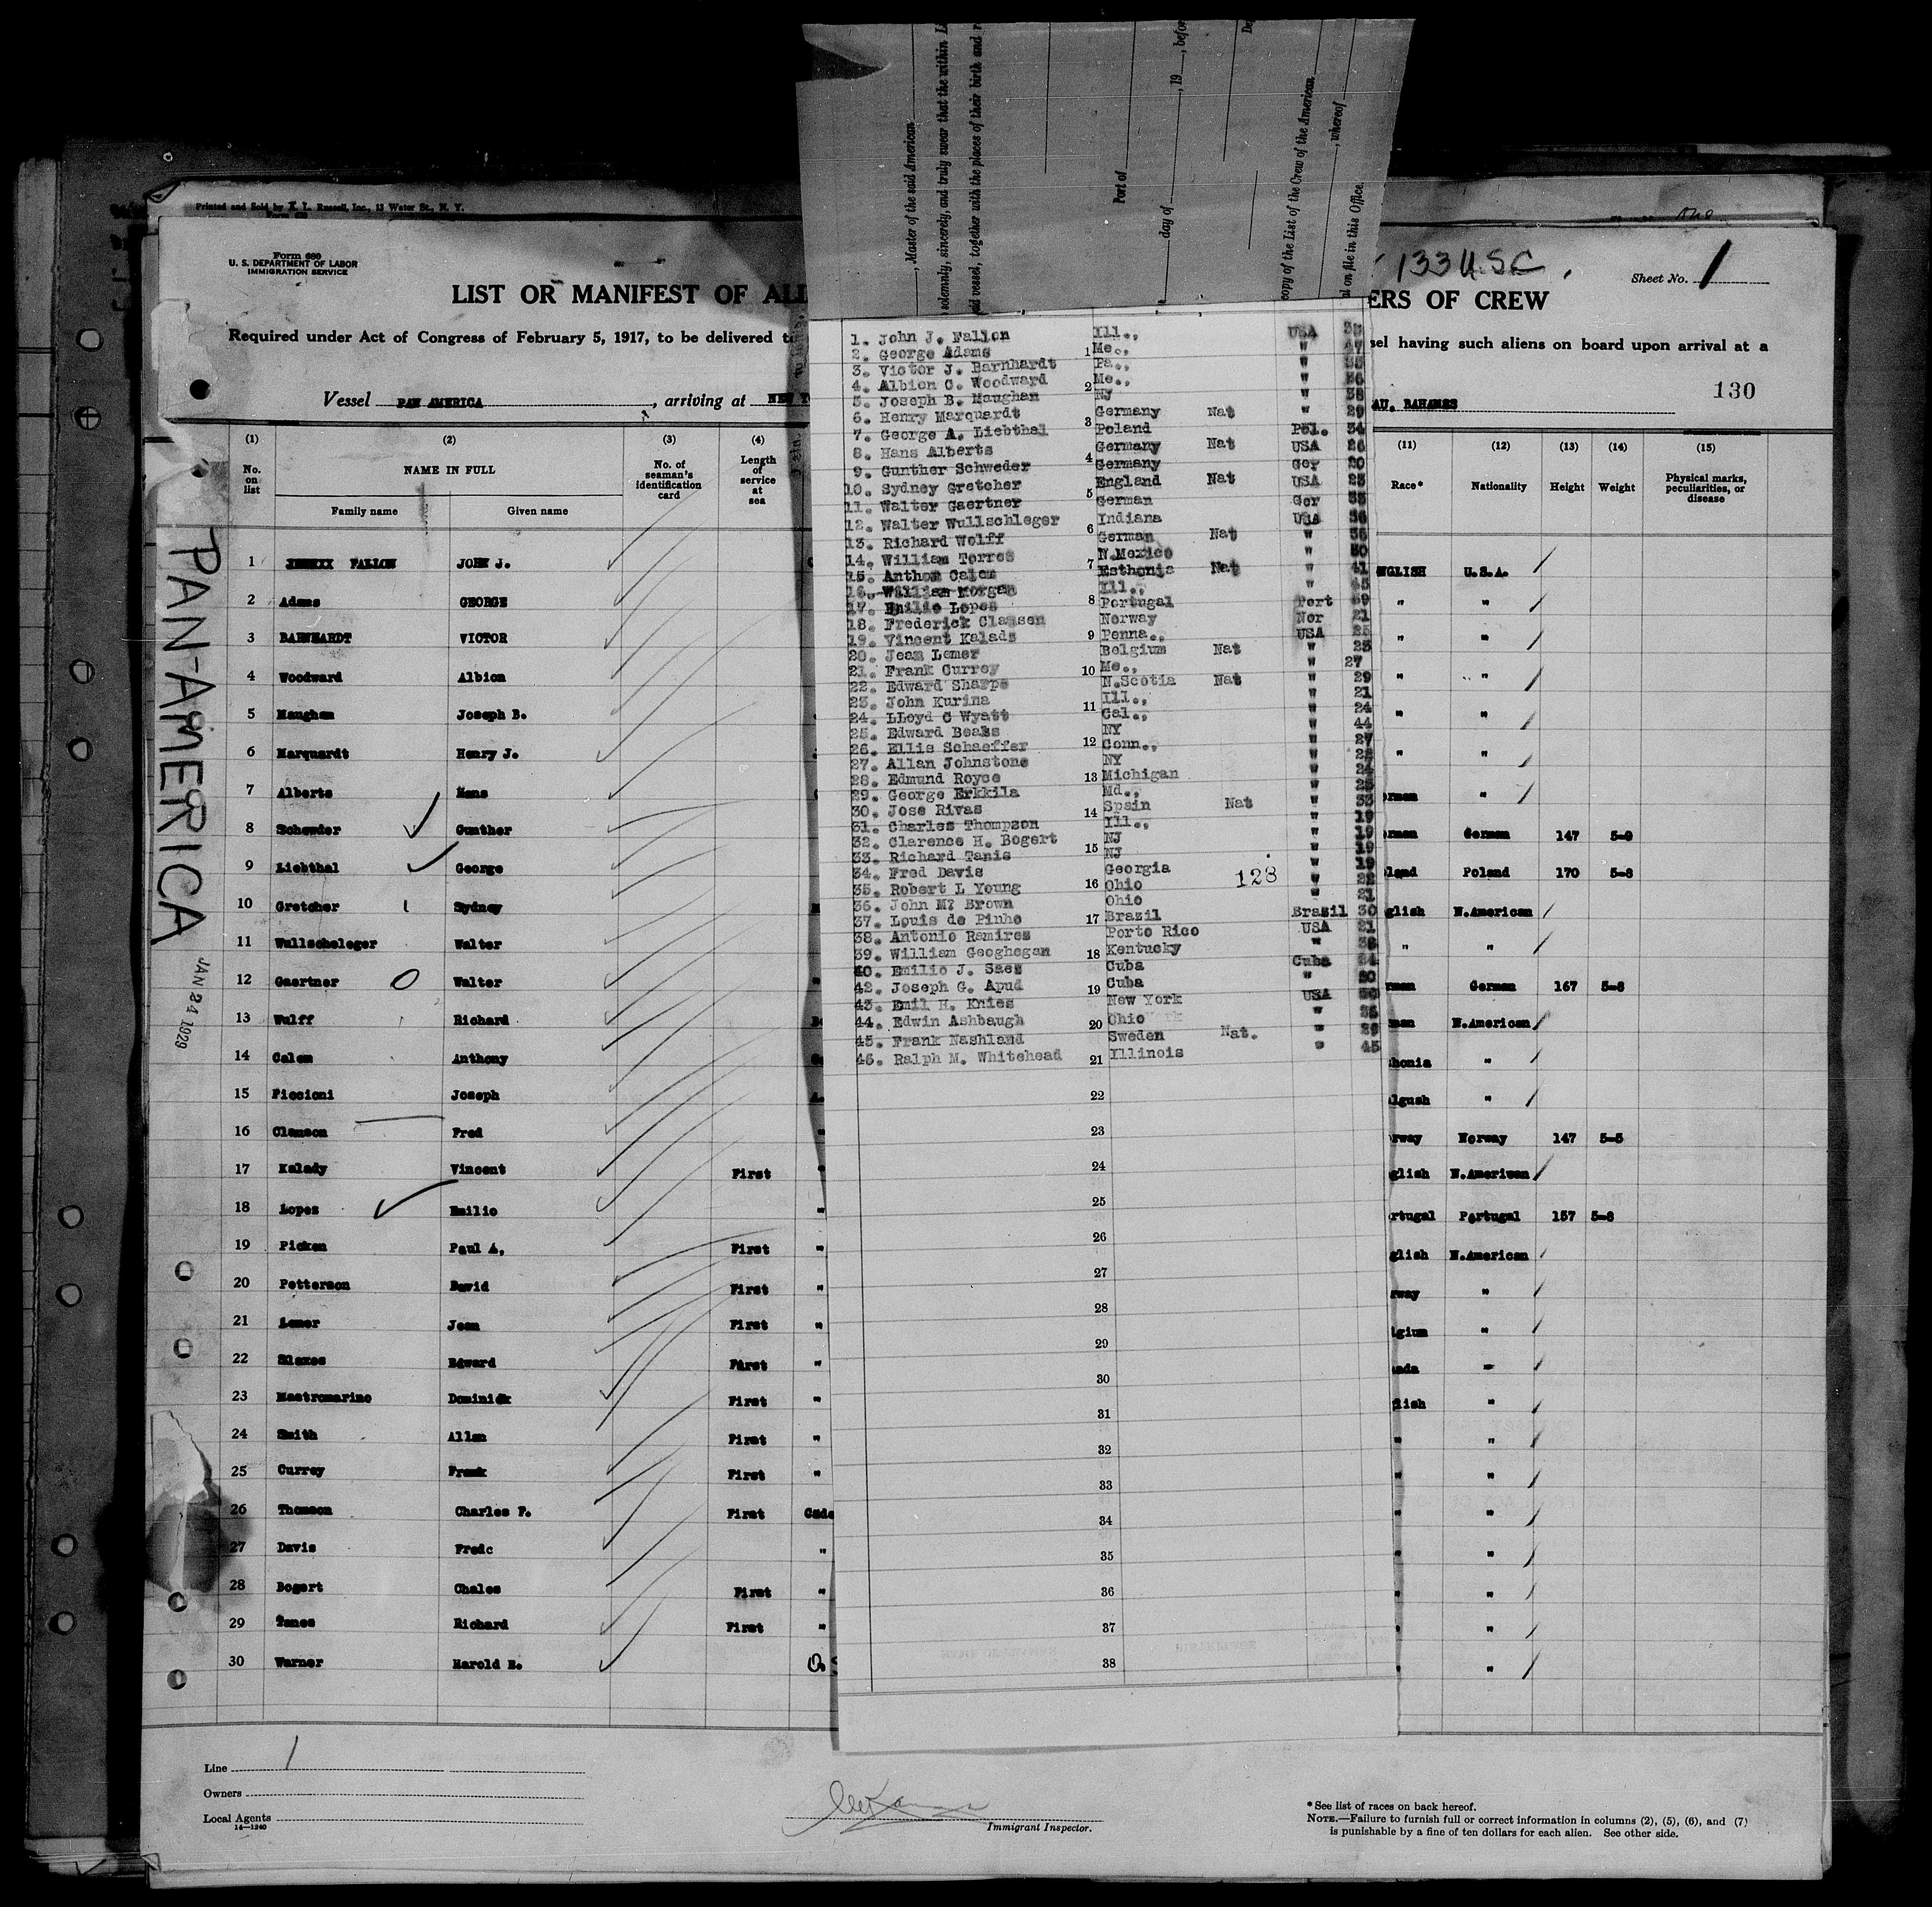 Printed and Sold by K. L. Russell, Inc., 13 Water St., N. Y.
Form 680
U. S. DEPARTMENT OF LABOR
IMMIGRATION SERVICE
133 U.S.C.
Sheet No. 1
LIST OR MANIFEST OF ALI
ERS OF CREW
Required under Act of Congress of February 5, 1917, to be delivered t
sel having such aliens on board upon arrival at a
130
Vessel PAN AMERICA, arriving at NEW Y
AU, BAHAMAS
, Master of the said American
solemnly, sincerely, and truly swear that the within L
id vessel, together with the places of their birth and r
Port of
day of , 19 , befor
copy of the List of the Crew of the American
, whereof
al on file in this Office.
(1) (2) (3) (4)
No. on list
NAME IN FULL
Family name Given name
No. of seaman's identification card
Length of service at sea
(11) (12) (13) (14) (15)
Race* Nationality Height Weight Physical marks, peculiarities, or disease
PAN-AMERICA
JAN 24 1929
1 FALLON JOHN J.
2 Adams GEORGE
3 BARNHARDT VICTOR
4 Woodward Albion
5 Maughan Joseph B.
6 Marquardt Henry J.
7 Alberts Hans
8 Schewder Gunther
9 Liebthal George
10 Gretcher Sydney
11 Wullscheleger Walter
12 Gaertner Walter
13 Wulff Richard
14 Calem Anthony
15 Piccioni Joseph
16 Clamson Fred
17 Kalady Vincent First
18 Lopez Emilio "
19 Picken Paul A. First "
20 Petterson David First "
21 Lemer Jean First "
22 Edward First "
23 Mastromarino Dominick First "
24 Smith Allen First "
25 Currey Frank First "
26 Thomson Charles F. First Cade
27 Davis Fredc "
28 Bogert Chales First "
29 Tanes Richard First "
30 Warner Harold E.
1. John J. Fallon Ill., USA
2. George Adams Me., " 47
3. Victor J. Barnhardt Pa., "
4. Albion C. Woodward Me., "
5. Joseph B. Maughan NJ " 38
6. Henry Marquardt Germany Nat " 29
7. George A. Liebthal Poland Pol. 34
8. Hans Alberts Germany Nat USA 26
9. Gunther Schweder Germany Ger 20
10. Sydney Gretcher England Nat USA 23
11. Walter Gaertner German Ger
12. Walter Wullschleger Indiana USA
13. Richard Wolff German Nat "
14. William Torres N.Mexico "
15. Anthon Calem Esthonia Nat " 41
16. William Morgan Ill., " 45
17. Emilio Lopes Portugal Port
18. Frederick Clamsen Norway Nor 21
19. Vincent Kalads Penna., USA 25
20. Jean Lemer Belgium Nat " 23
21. Frank Currey Me., " 27
22. Edward Sharpe N.Scotia Nat " 29
23. John Kurina Ill., " 21
24. LLoyd C Wyatt Cal., " 24
25. Edward Beaks NY " 44
26. Ellis Schaeffer Conn., " 27
27. Allan Johnstone NY "
28. Edmund Royce Michigan " 24
29. George Erkkila Md., "
30. Jose Rivas Spain Nat " 33
31. Charles Thompson Ill., " 19
32. Clarence H. Bogert NJ " 19
33. Richard Tanis NJ " 19
34. Fred Davis Georgia " 19
35. Robert L Young Ohio " 22
128
36. John M? Brown Ohio " 21
37. Louis de Pinho Brazil Brazil 30
38. Antonio Ramires Porto Rico USA 21
39. William Geoghegan Kentucky "
40. Emilio J. Saez Cuba Cuba
42. Joseph G. Apud Cuba "
43. Emil H. Knies New York USA
44. Edwin Ashbaugh Ohio "
45. Frank Nashland Sweden Nat. "
46. Ralph M. Whitehead Illinois " 45
1
2
3
4
5
6
7
8
9
10
11
12
13
14
15
16
17
18
19
20
21
22
23
24
25
26
27
28
29
30
31
32
33
34
35
36
37
38
NGLISH U.S.A.
" "
" "
" "
" "
" "
rman "
rman German 147 5-9
land Poland 170 5-8
glish N.American
" "
rman German 167 5-8
man N.American
honia "
lgush "
rway Norway 147 5-5
glish N.American
rtugal Portugal 157 5-6
glish N.American
rway "
lgium "
ada "
glish "
" "
" "
" "
" "
" "
" "
" "
Line 1
Owners
Local Agents
14—1240
Immigrant Inspector.
* See list of races on back hereof.
NOTE.—Failure to furnish full or correct information in columns (2), (5), (6), and (7)
is punishable by a fine of ten dollars for each alien. See other side.